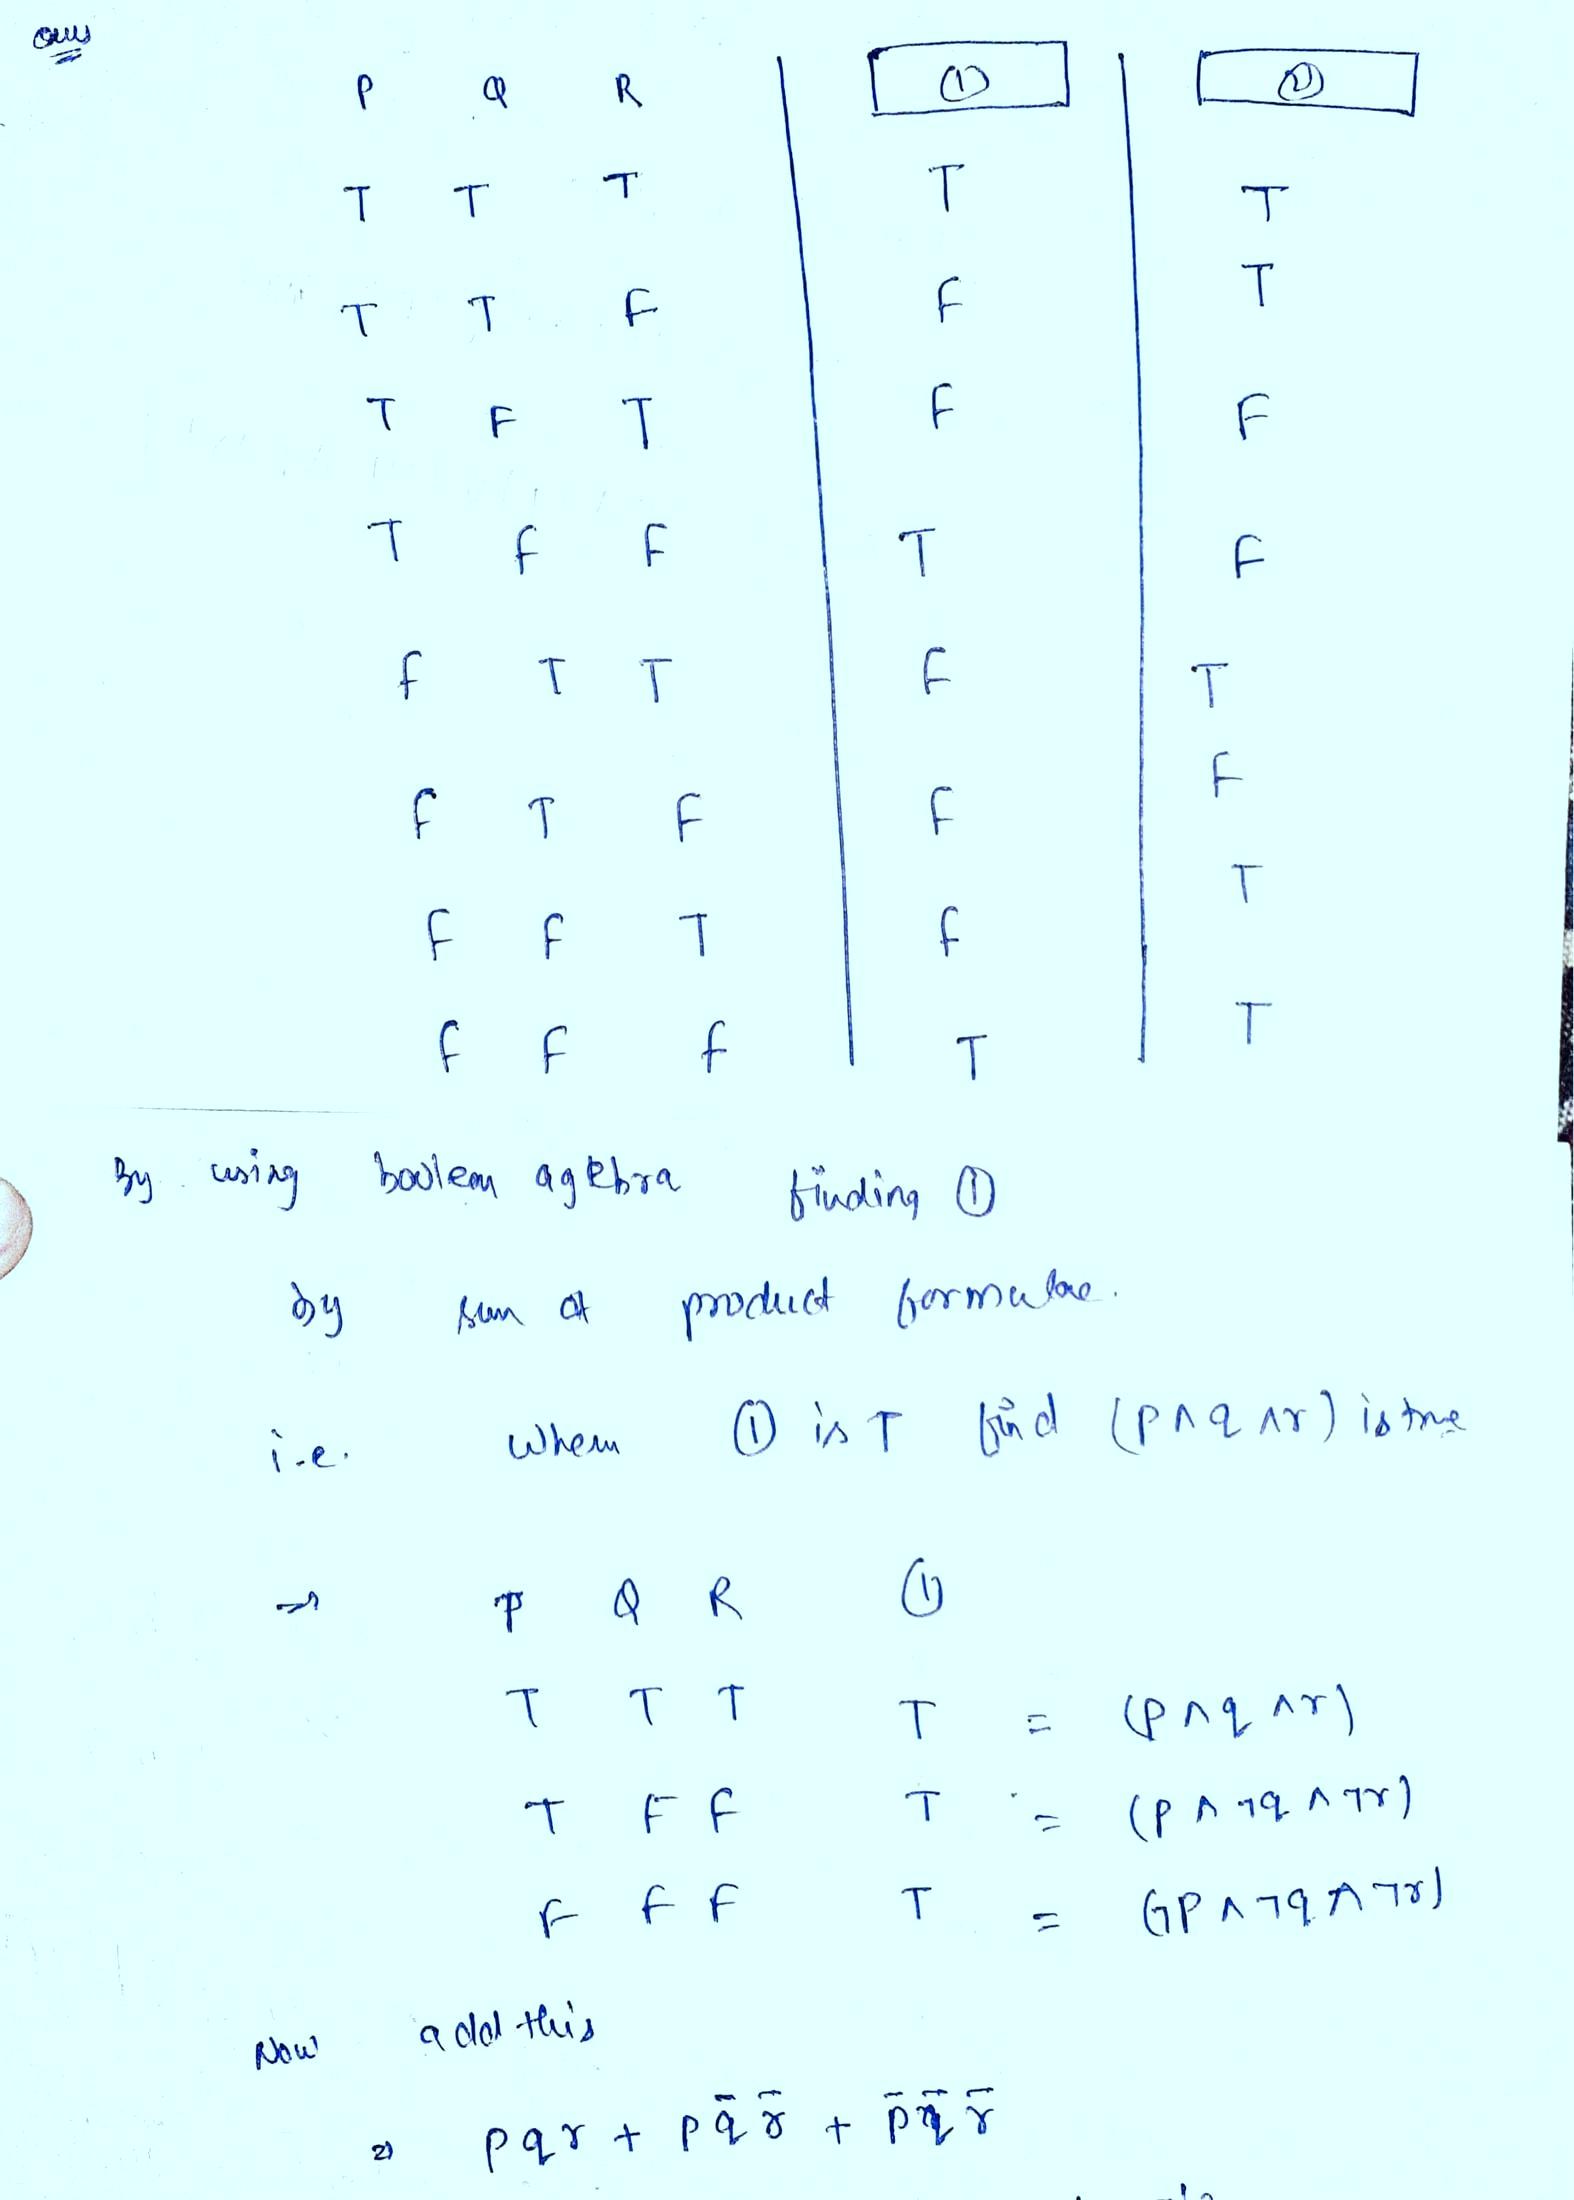 Ans
P Q R ① ②
T T T T T
T T F F T
T F T F F
T F F T F
F T T F T
F T F F F
F F T F T
F F F T T
By using boolean agebra finding ①
by sum of product formulae.
i.e. when ① is T find (p∧q∧r) is true
⇒ P Q R ①
T T T T = (p∧q∧r)
T F F T = (p∧¬q∧¬r)
F F F T = (¬p∧¬q∧¬r)
Now add this
⇒ pqr + pq̄r̄ + p̄q̄r̄